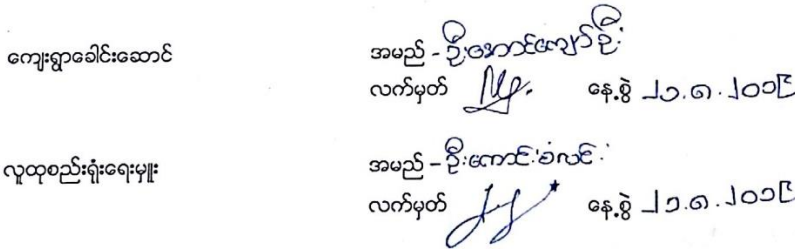 ကျေးရွာခေါင်းဆောင် အမည် - ဦးအောင်ကျော်ဦး
လက်မှတ် နေ့စွဲ ၂၁.၈.၂၀၁၉
လူထုစည်းရုံးရေးမှူး အမည် - ဦးကောင်းစံလင်း
လက်မှတ် နေ့စွဲ ၂၁.၈.၂၀၁၉